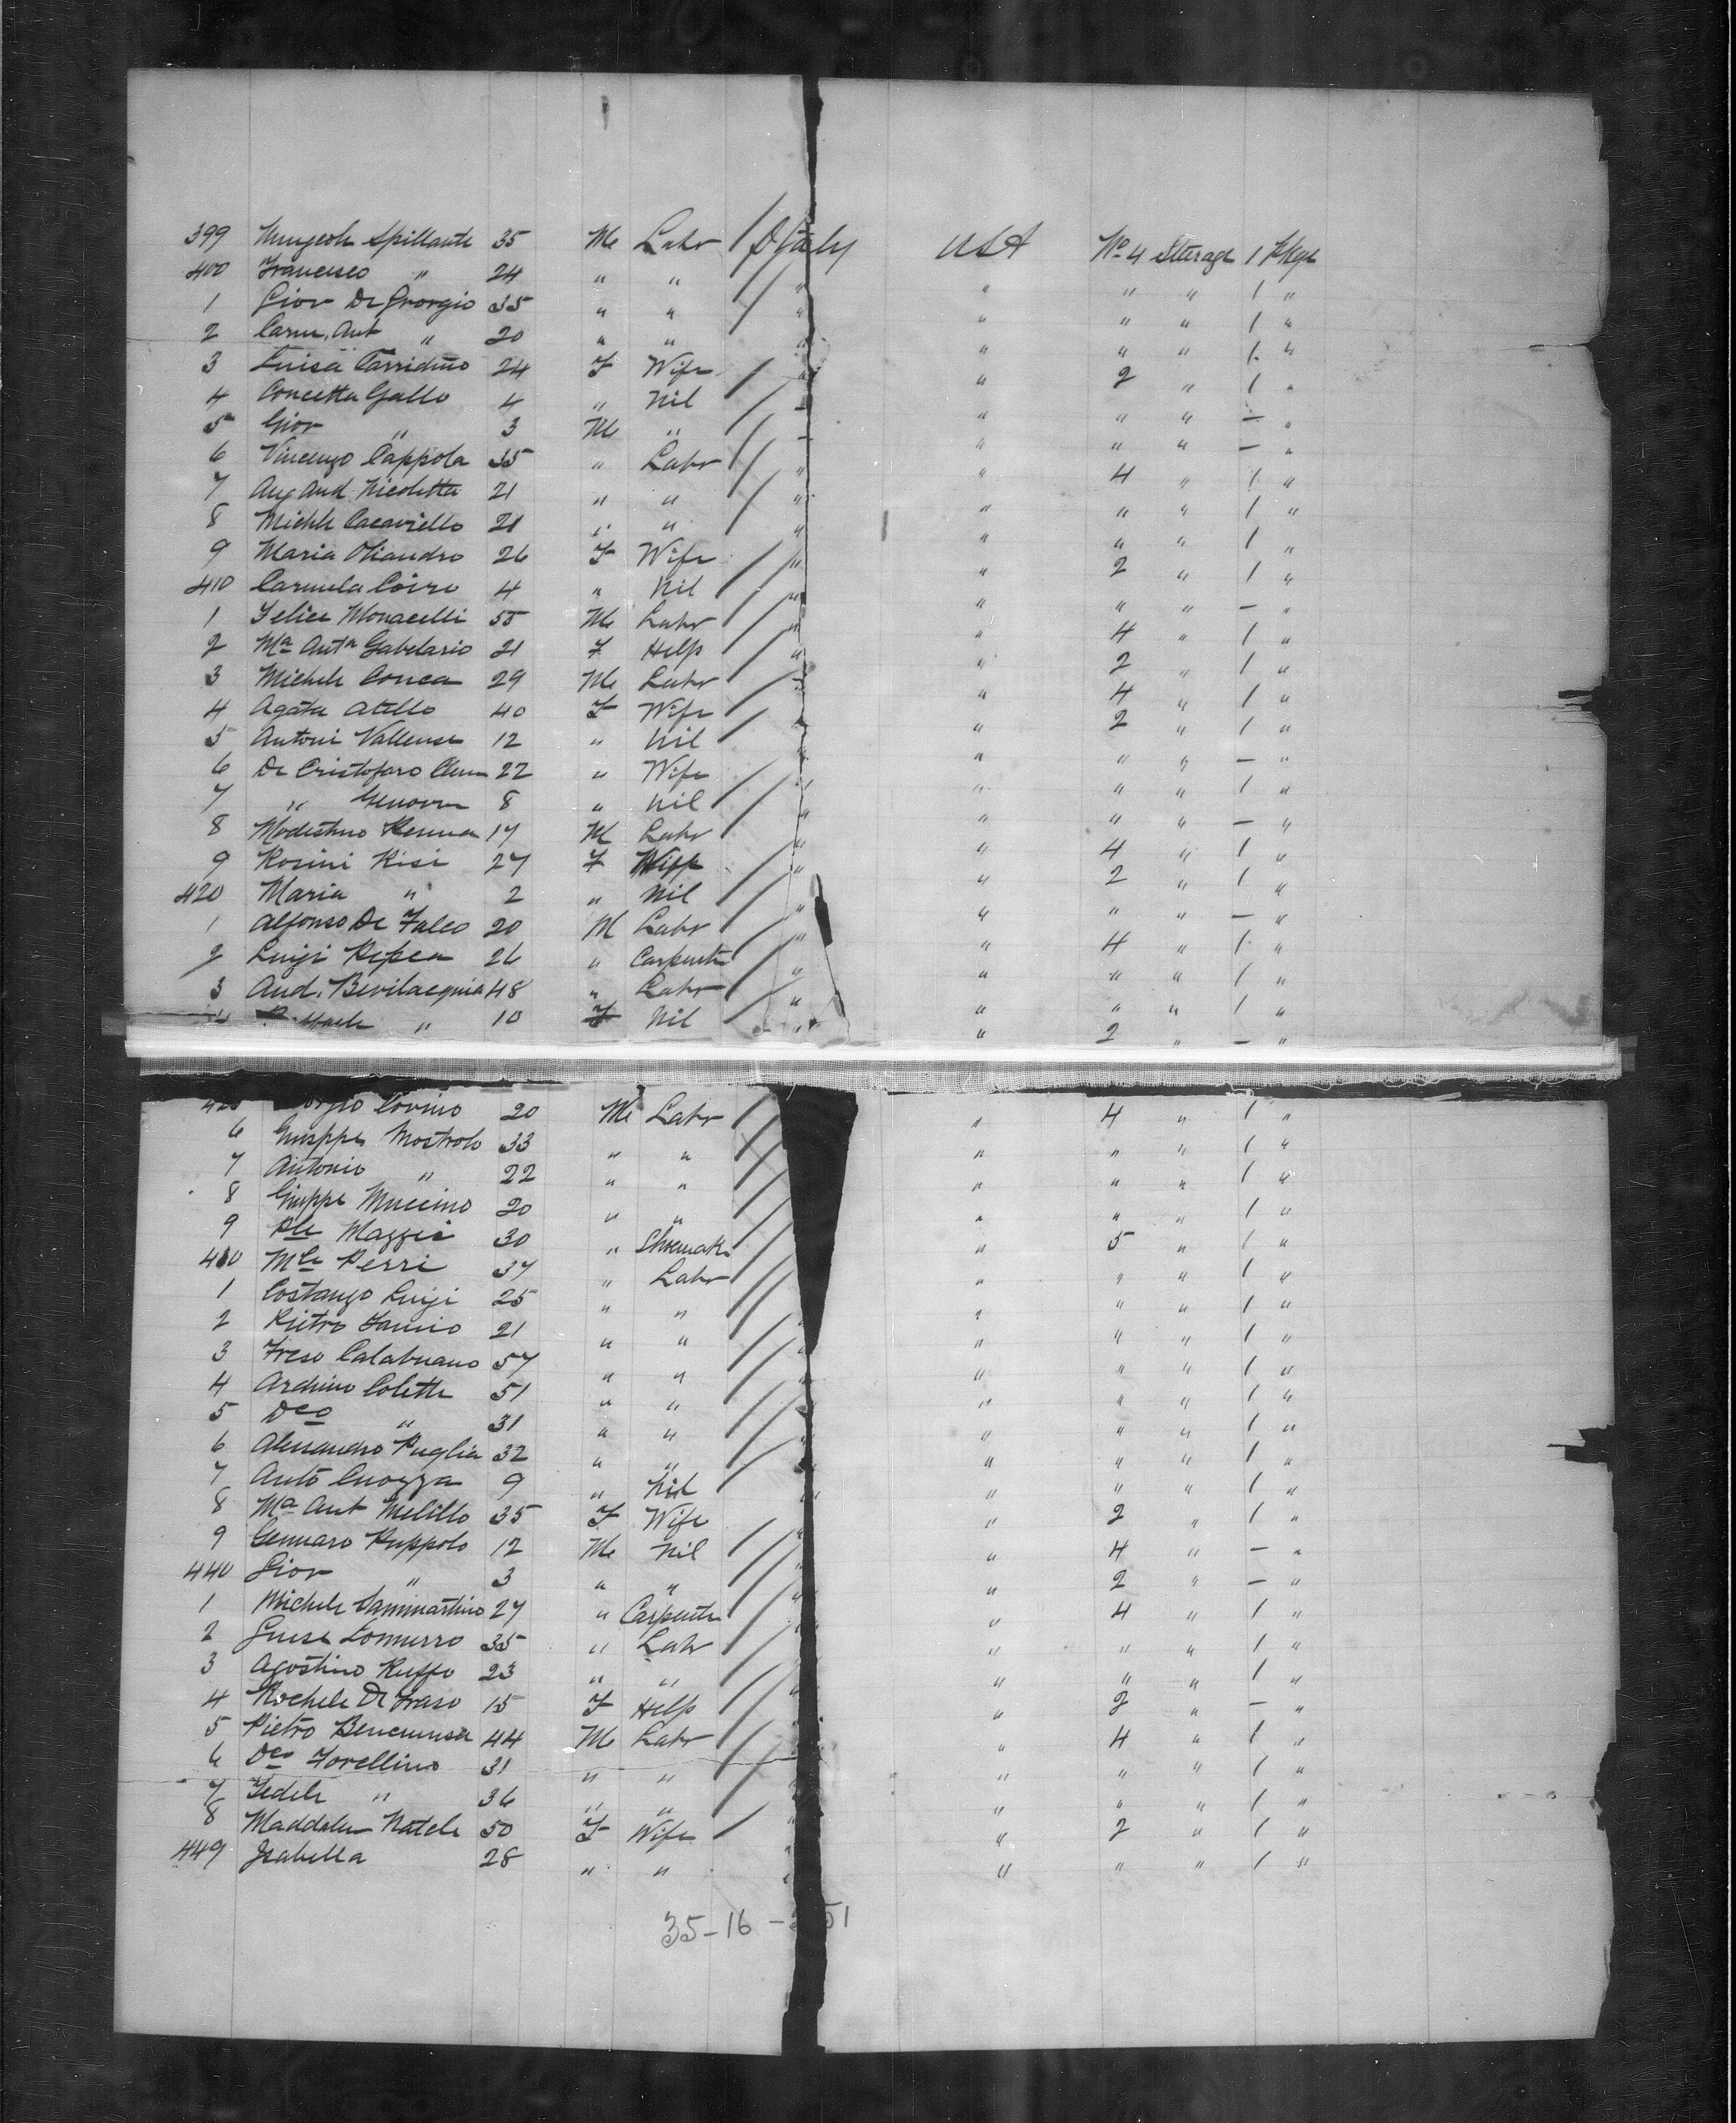 399 Spillante 35 M Labr Italy USA No 4 Sterage 1 Pkgs
400 Francesco " 24 " " " " " " 1 "
1 Giov De Giorgio 35 " " " " " " 1 "
2 Carm. Ant " 20 " " " " " " 1 "
3 Luisa 24 F Wife " 2 " 1 "
4 Concetta Gallo 4 " Nil " " " — "
5 Giov " 3 M " " " " — "
6 Vincenzo Cappola 35 " Labr " " 4 " 1 "
7 And. Nicoletta 21 " " " " " " 1 "
8 Michle Cacaviello 21 " " " " " " 1 "
9 Maria Oliandro 26 F Wife " " 2 " 1 "
410 Carmela Coiro 4 " Nil " " " " — "
1 Felice Monacelli 55 M Labr " " 4 " 1 "
2 Ma Anta Gabelario 21 F Help " " 2 " 1 "
3 Michele Conca 29 M Labr " " 4 " 1 "
4 Agata Atello 40 F Wife " " 2 " 1 "
5 Antoni Vallense 12 " Nil " " " " — "
6 De Cristofaro 22 " Wife " " " " 1 "
7 " Genova 8 " Nil " " " " — "
8 Modestino Penna 17 M Labr " " 4 " 1 "
9 Rosini Risi 27 F Wife " " 2 " 1 "
420 Maria " 2 " Nil " " " " — "
1 Alfonso De Falco 20 M Labr " " 4 " 1 "
2 Luigi Pepea 26 " Carpentr " " " " 1 "
3 And. Bevilacquia 48 " Labr " " " " 1 "
4 " 10 F Nil " " 2 " — "
Covino 20 M Labr " 4 " 1 "
6 Giuseppe Mostrolo 33 " " " " " 1 "
7 Antonio " 22 " " " " " 1 "
8 Giuppe Muccino 20 " " " " " 1 "
9 Ple Mazzei 30 " Shoemakr " 5 " 1 "
430 Mle Perri 37 " Labr " " " 1 "
1 Costanzo Luigi 25 " " " " " 1 "
2 Pietro Iannio 21 " " " " " 1 "
3 Calabuano 57 " " " " " 1 "
4 Archino Colette 51 " " " " " 1 "
5 Dco " 31 " " " " " 1 "
6 Alessandro Puglia 32 " " " " " 1 "
7 Anto Cuozza 9 " Nil " " " 1 "
8 Ma Ant Melillo 35 F Wife " 2 " 1 "
9 Gennaro Ruppolo 12 M Nil " 4 " — "
440 Giov " 3 " " " 2 " — "
1 Michele Sammartino 27 " Carpentr " 4 " 1 "
2 Giuse Lomurro 35 " Labr " " " 1 "
3 Agostino Ruffo 23 " " " " " 1 "
4 Rochele Di Fraso 15 F Help " 2 " — "
5 Pietro 44 M Labr " 4 " 1 "
6 Dco Forellino 31 " " " " " 1 "
7 Fedele " 36 " " " " " 1 "
8 Maddalen Natele 50 F Wife " 2 " 1 "
449 Isabella 28 " " " " " 1 "
35-16- 51